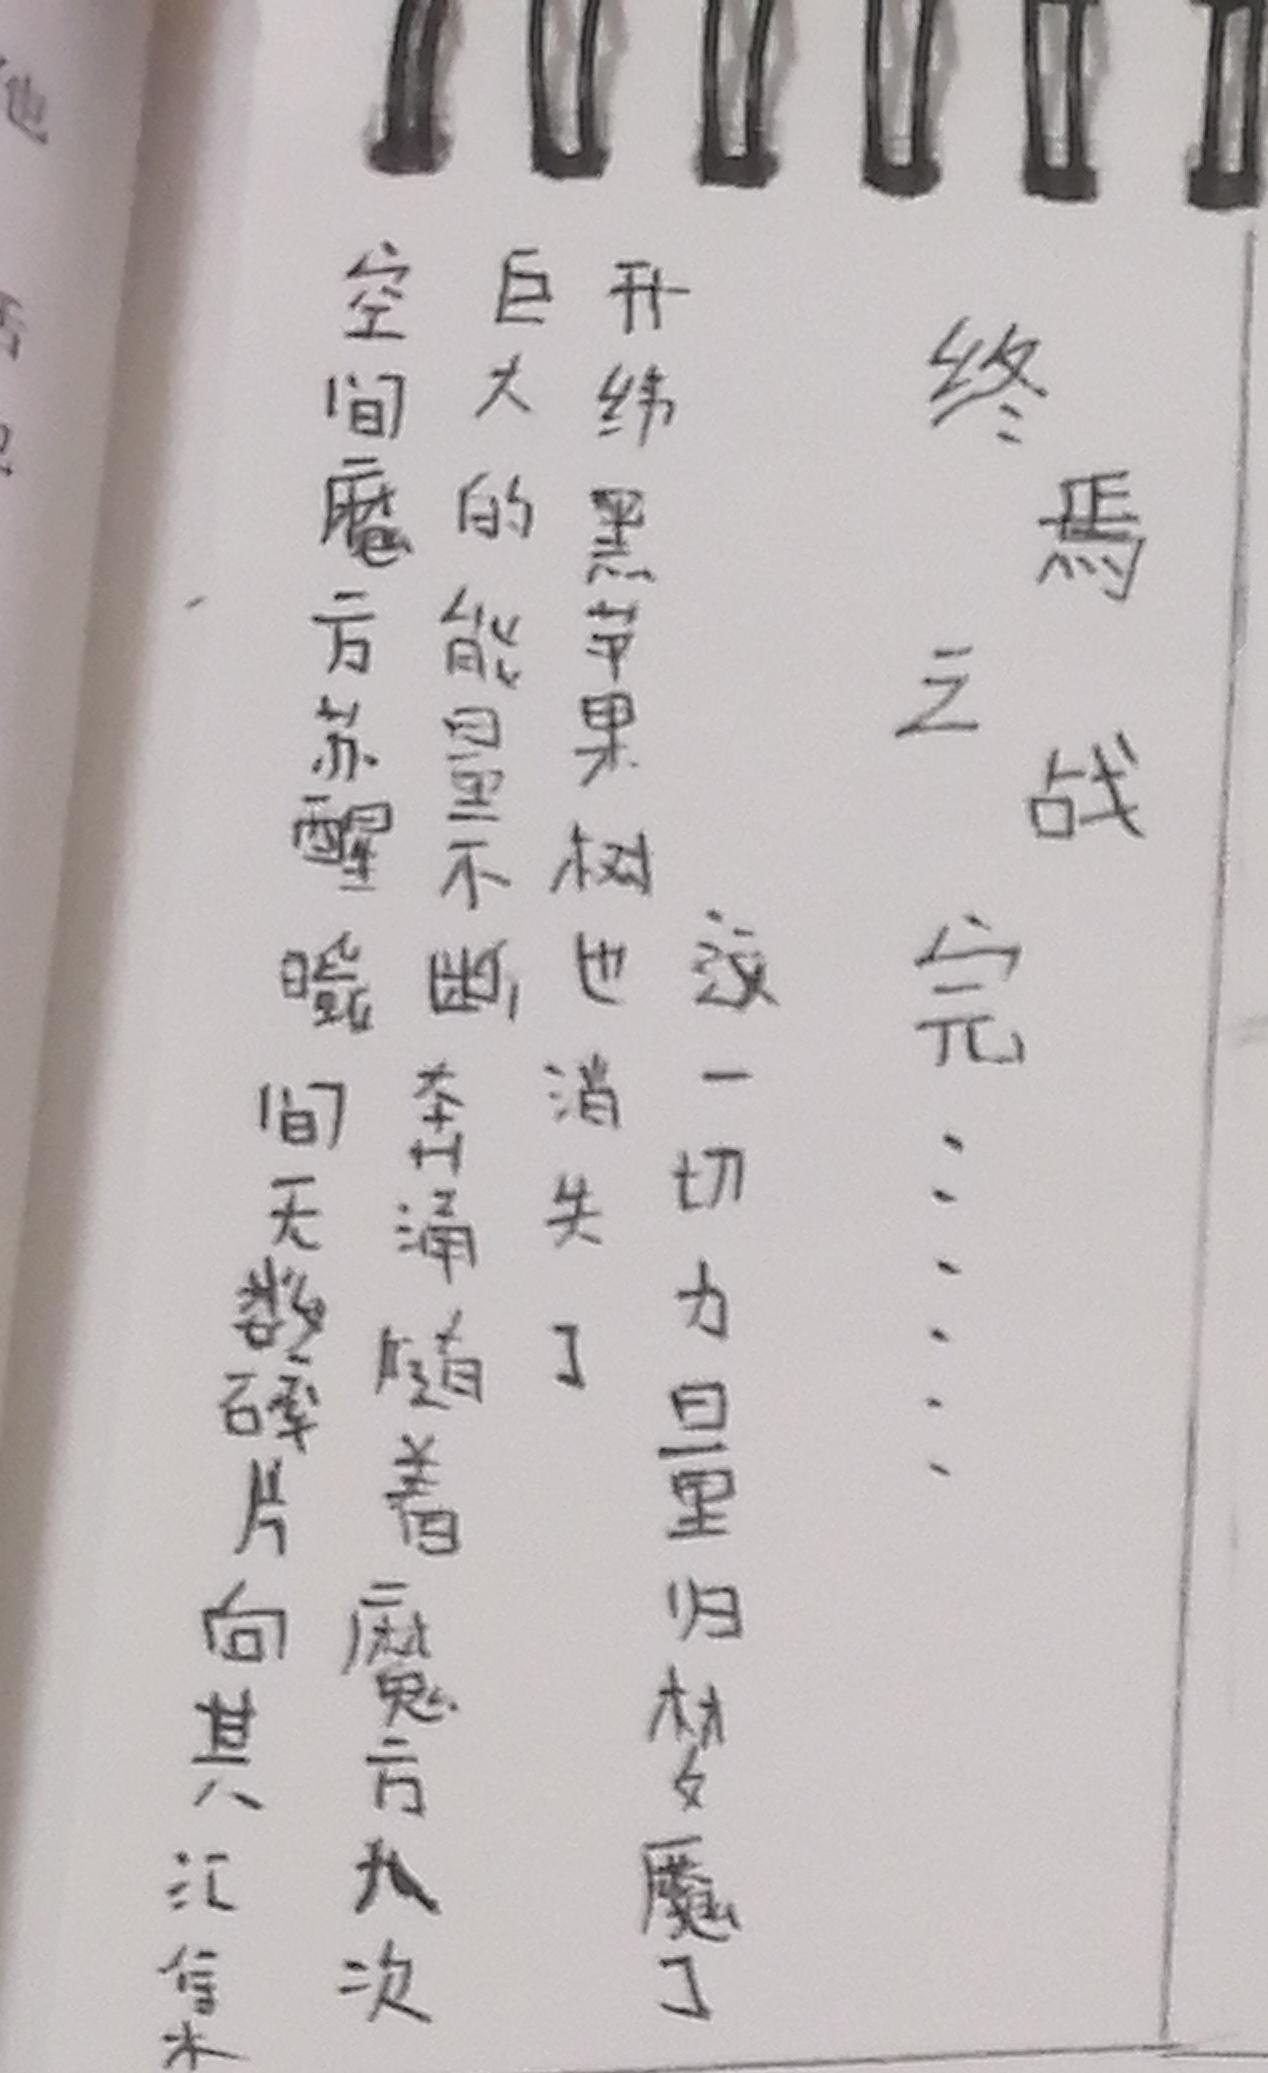 终焉之战完……
这一切力量归梦魇了
升纬黑苹果树也消失了
巨大的能量不断奔涌随着魔方九次
空间魔方苏醒瞬间无数碎片向其汇集